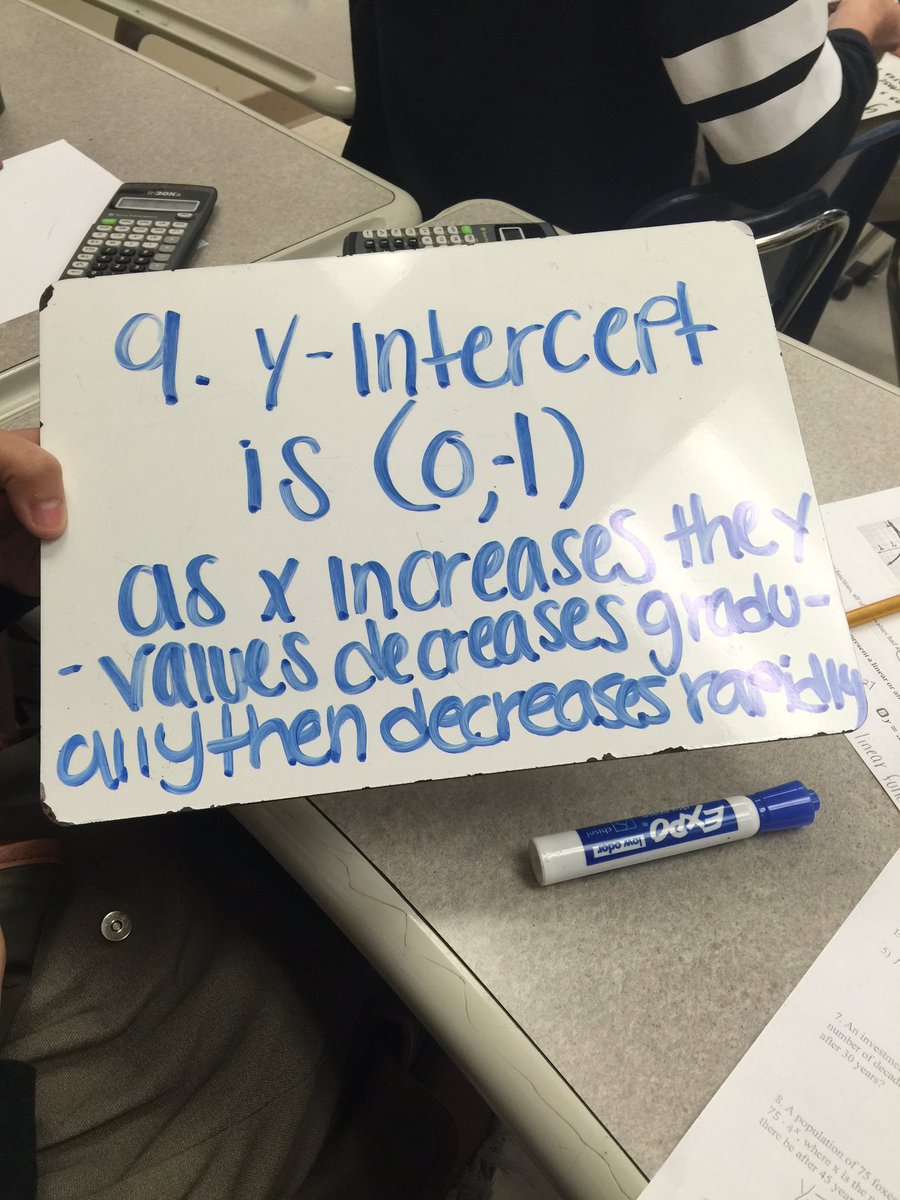 TI-30Xa
9. y-Intercept
is (0,-1)
as x increases the y
-values decreases gradu-
ally then decreases rapidly
EXPO
low odor
chisel
linear
5)
7. An investme
number of decad
after 30 years?
8. A population of 75 foxes
75 · 4ˣ, where x is the
there be after 45 ye